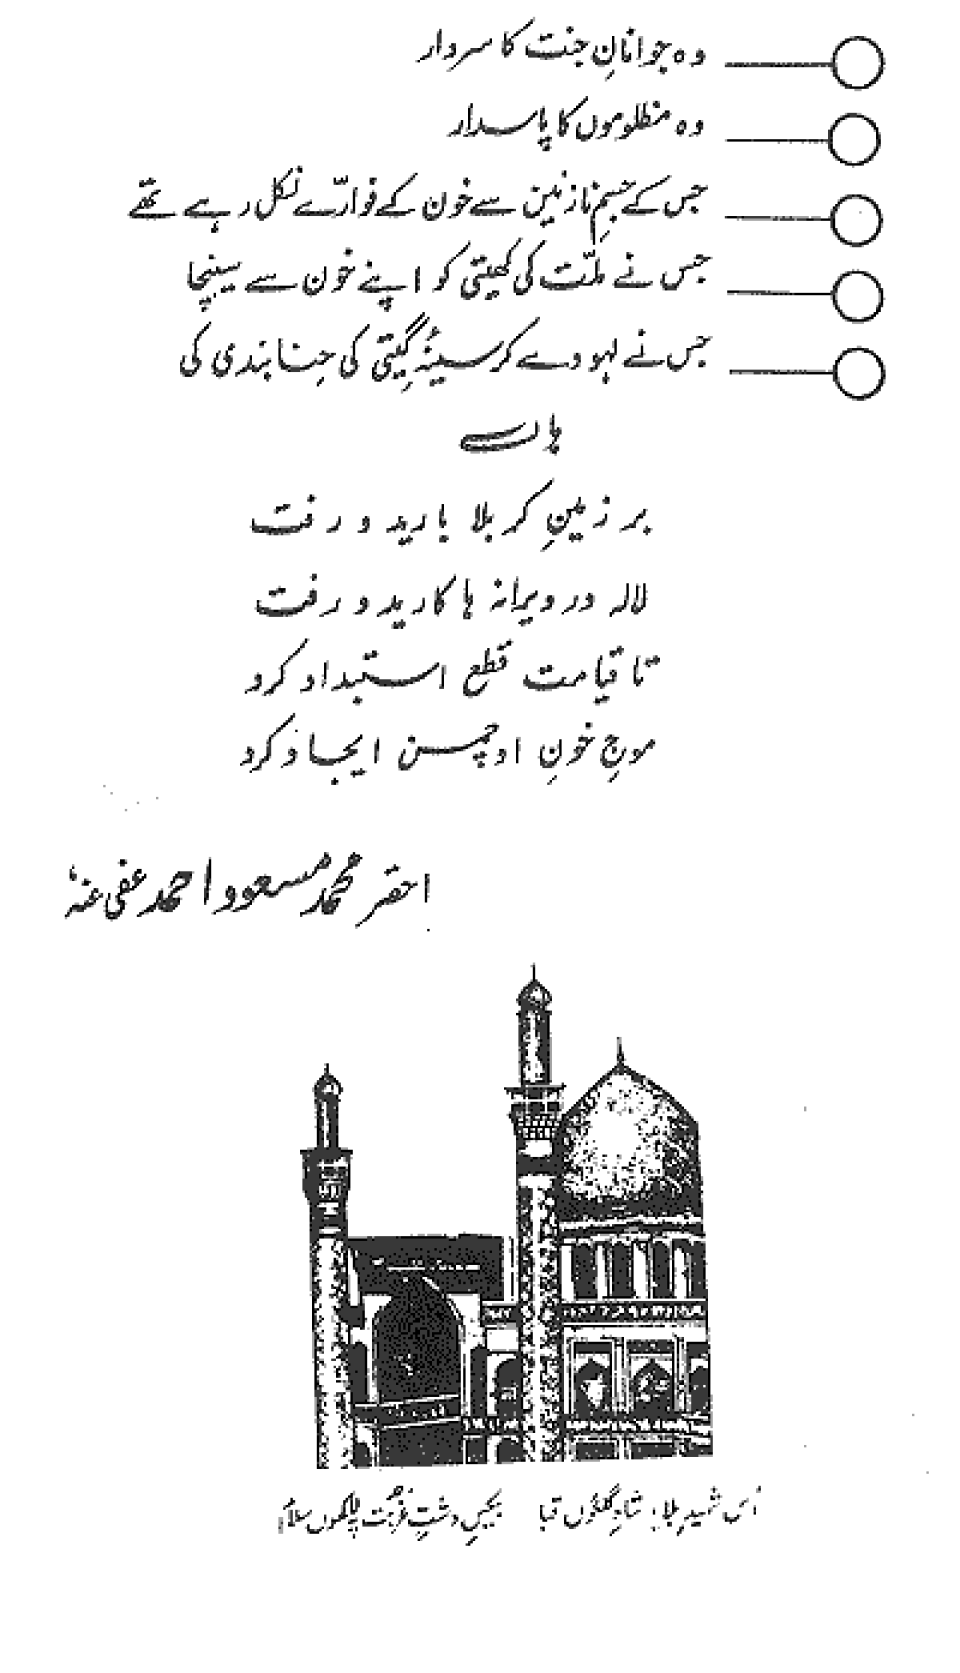 وہ جوانانِ جنت کا سردار
وہ مظلوموں کا پاسدار
جس کے جسمِ نازنین سے خون کے فوارّے نکل رہے تھے
جس نے ملّت کی کھیتی کو اپنے خون سے سینچا
جس نے لہو دے کر سینۂ گیتی کی حنا بندی کی
ہاں ے
بر زمینِ کربلا بارید و رفت
لالہ در ویرانہ ہا کارید و رفت
تا قیامت قطع استبداد کرد
موجِ خونِ او چمن ایجاد کرد
احقر محمد مسعود احمد عفی عنہٗ
اُس شہیدِ بلا، شاہِ گلگوں قبا بیکسِ دشتِ غربت پہ لاکھوں سلام